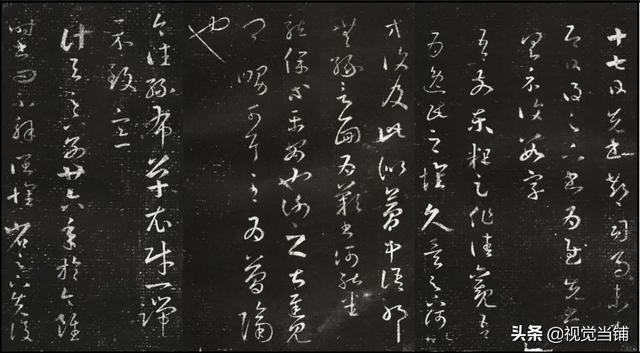 十七日先書郗司馬未
即日得足下書為慰先書
具示復數字
吾前東粗足作佳觀吾
為逸民之懷久矣足下何以
方復及此似夢中語耶
無緣言面為歎書何能悉
龍保等平安也謝之甚遲見
卿舅可耳至為簡隔
也
今往絲布單衣財一端
示致意
計與足下別廿六年於今雖
時書問不解闊懷省足下先後
头条 @视觉当铺